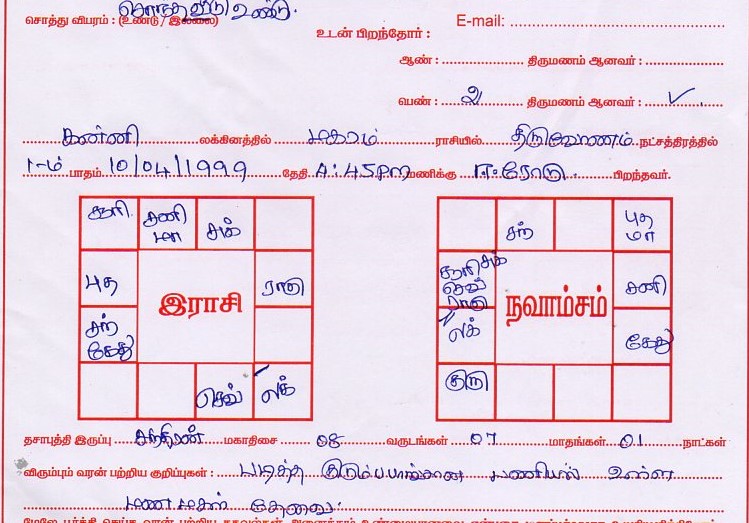 சொந்த வீடு உண்டு.
சொத்து விபரம் : (உண்டு / இல்லை)
E-mail:
உடன் பிறந்தோர் :
ஆண் : திருமணம் ஆனவர் :
பெண் : 2 திருமணம் ஆனவர் : ✓
கன்னி லக்கினத்தில் மகரம் ராசியில் திருவோணம் நட்சத்திரத்தில்
1-ம் பாதம் 10/04/1999 தேதி 4:45 PM மணிக்கு ஈரோடு பிறந்தவர்.
சூரி சனி மா சுக்
புத ராகு
சந் கேது
செவ் லக்
இராசி
சந் புத மா
சூரி சுக் செவ் ராகு சனி
லக் கேது
குரு
நவாம்சம்
தசாபுத்தி இருப்பு சந்திரன் மகாதிசை 08 வருடங்கள் 07 மாதங்கள் 01 நாட்கள்
விரும்பும் வரன் பற்றிய குறிப்புகள் : படித்த குடும்பபாங்கான பணியில் உள்ள
மணமகள் தேவை.